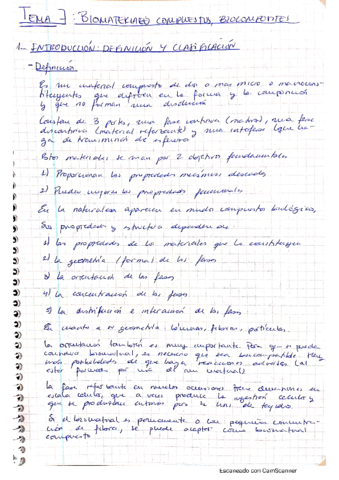 TEMA 7: BIOMATERIALES COMPUESTOS, BIOCOMPOSITES
1.- INTRODUCCIÓN: DEFINICIÓN Y CLASIFICACIÓN
- Definición
Es un material compuesto de dos o mas micro o macrocons-
tituyentes que difieren en la forma y la composición
y que no forman una disolución
Constan de 3 partes, una fase continua (matriz), una fase
discontinua (material reforzante) y una interfase (que ha-
ga de transmisión de esfuerzos
Estos materiales se usan por 2 objetivos fundamentales
1) Proporcionan las propiedades mecánicas deseadas
2) Pueden mejorar las propiedades funcionales
En la naturaleza aparecen en mundo compuesto biológico,
Sus propiedades y estructura dependen de
1) las propiedades de los materiales que lo constituyen
2) la geometría (forma) de las fases
3) la orientación de las fases
4) la concentración de las fases
5) la distribución e interacción de las fases
En cuanto a su geometría: láminas, fibras, partículas.
La orientación también es muy importante. Para que se pueda
biomaterial, es necesario que sea biocompatible. Hay
más posibilidades de que haya reacciones adversas (al
estar formado por más de un material)
La fase reforzante en muchas ocasiones tiene dimensiones en
escala celular, que a veces produce la ingestión celular y
que se produzcan enzimas por la lisis de tejido.
Si el biomaterial es permanente o con pequeña concentra-
ción de fibras, se puede aceptar como biomaterial
compuesto
Escaneado con CamScanner